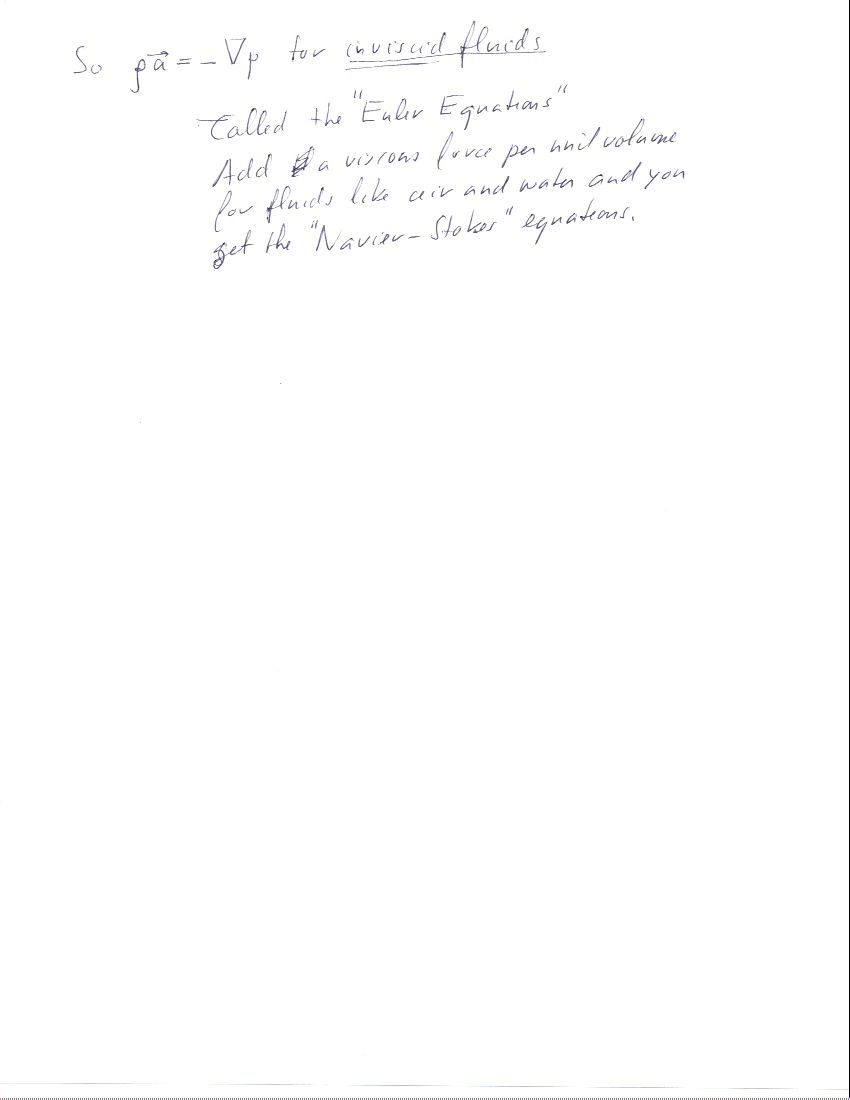 So ρa⃗ = -∇p for inviscid fluids
Called the "Euler Equations"
Add a viscous force per unit volume
for fluids like air and water and you
get the "Navier-Stokes" equations.